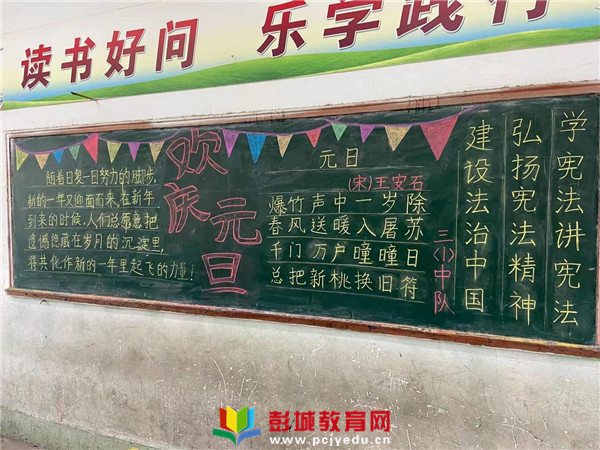 读书好问 乐学践行
随着日复一日努力的脚步,
新的一年又迎面而来,在新年
到来的时候,人们总愿意把
遗憾隐藏在岁月的沉淀里,
将其化作新的一年里起飞的力量!
欢庆
元旦
元日
(宋)王安石
爆竹声中一岁除
春风送暖入屠苏
千门万户曈曈日
总把新桃换旧符
三〈1〉中队
学宪法讲宪法
弘扬宪法精神
建设法治中国
彭城教育网
www.pcjyedu.cn